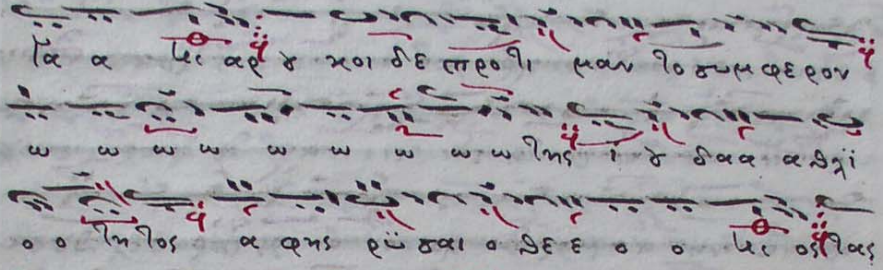 Τα α αρ ȣ κοι δε προτι μαν το συμφερον
ω ω ω ω ω ω ω ω ω της ι ȣ δαα α θλϊ
ο ο τητος α φης ρϋσαι ο θεε ο ο ος τας